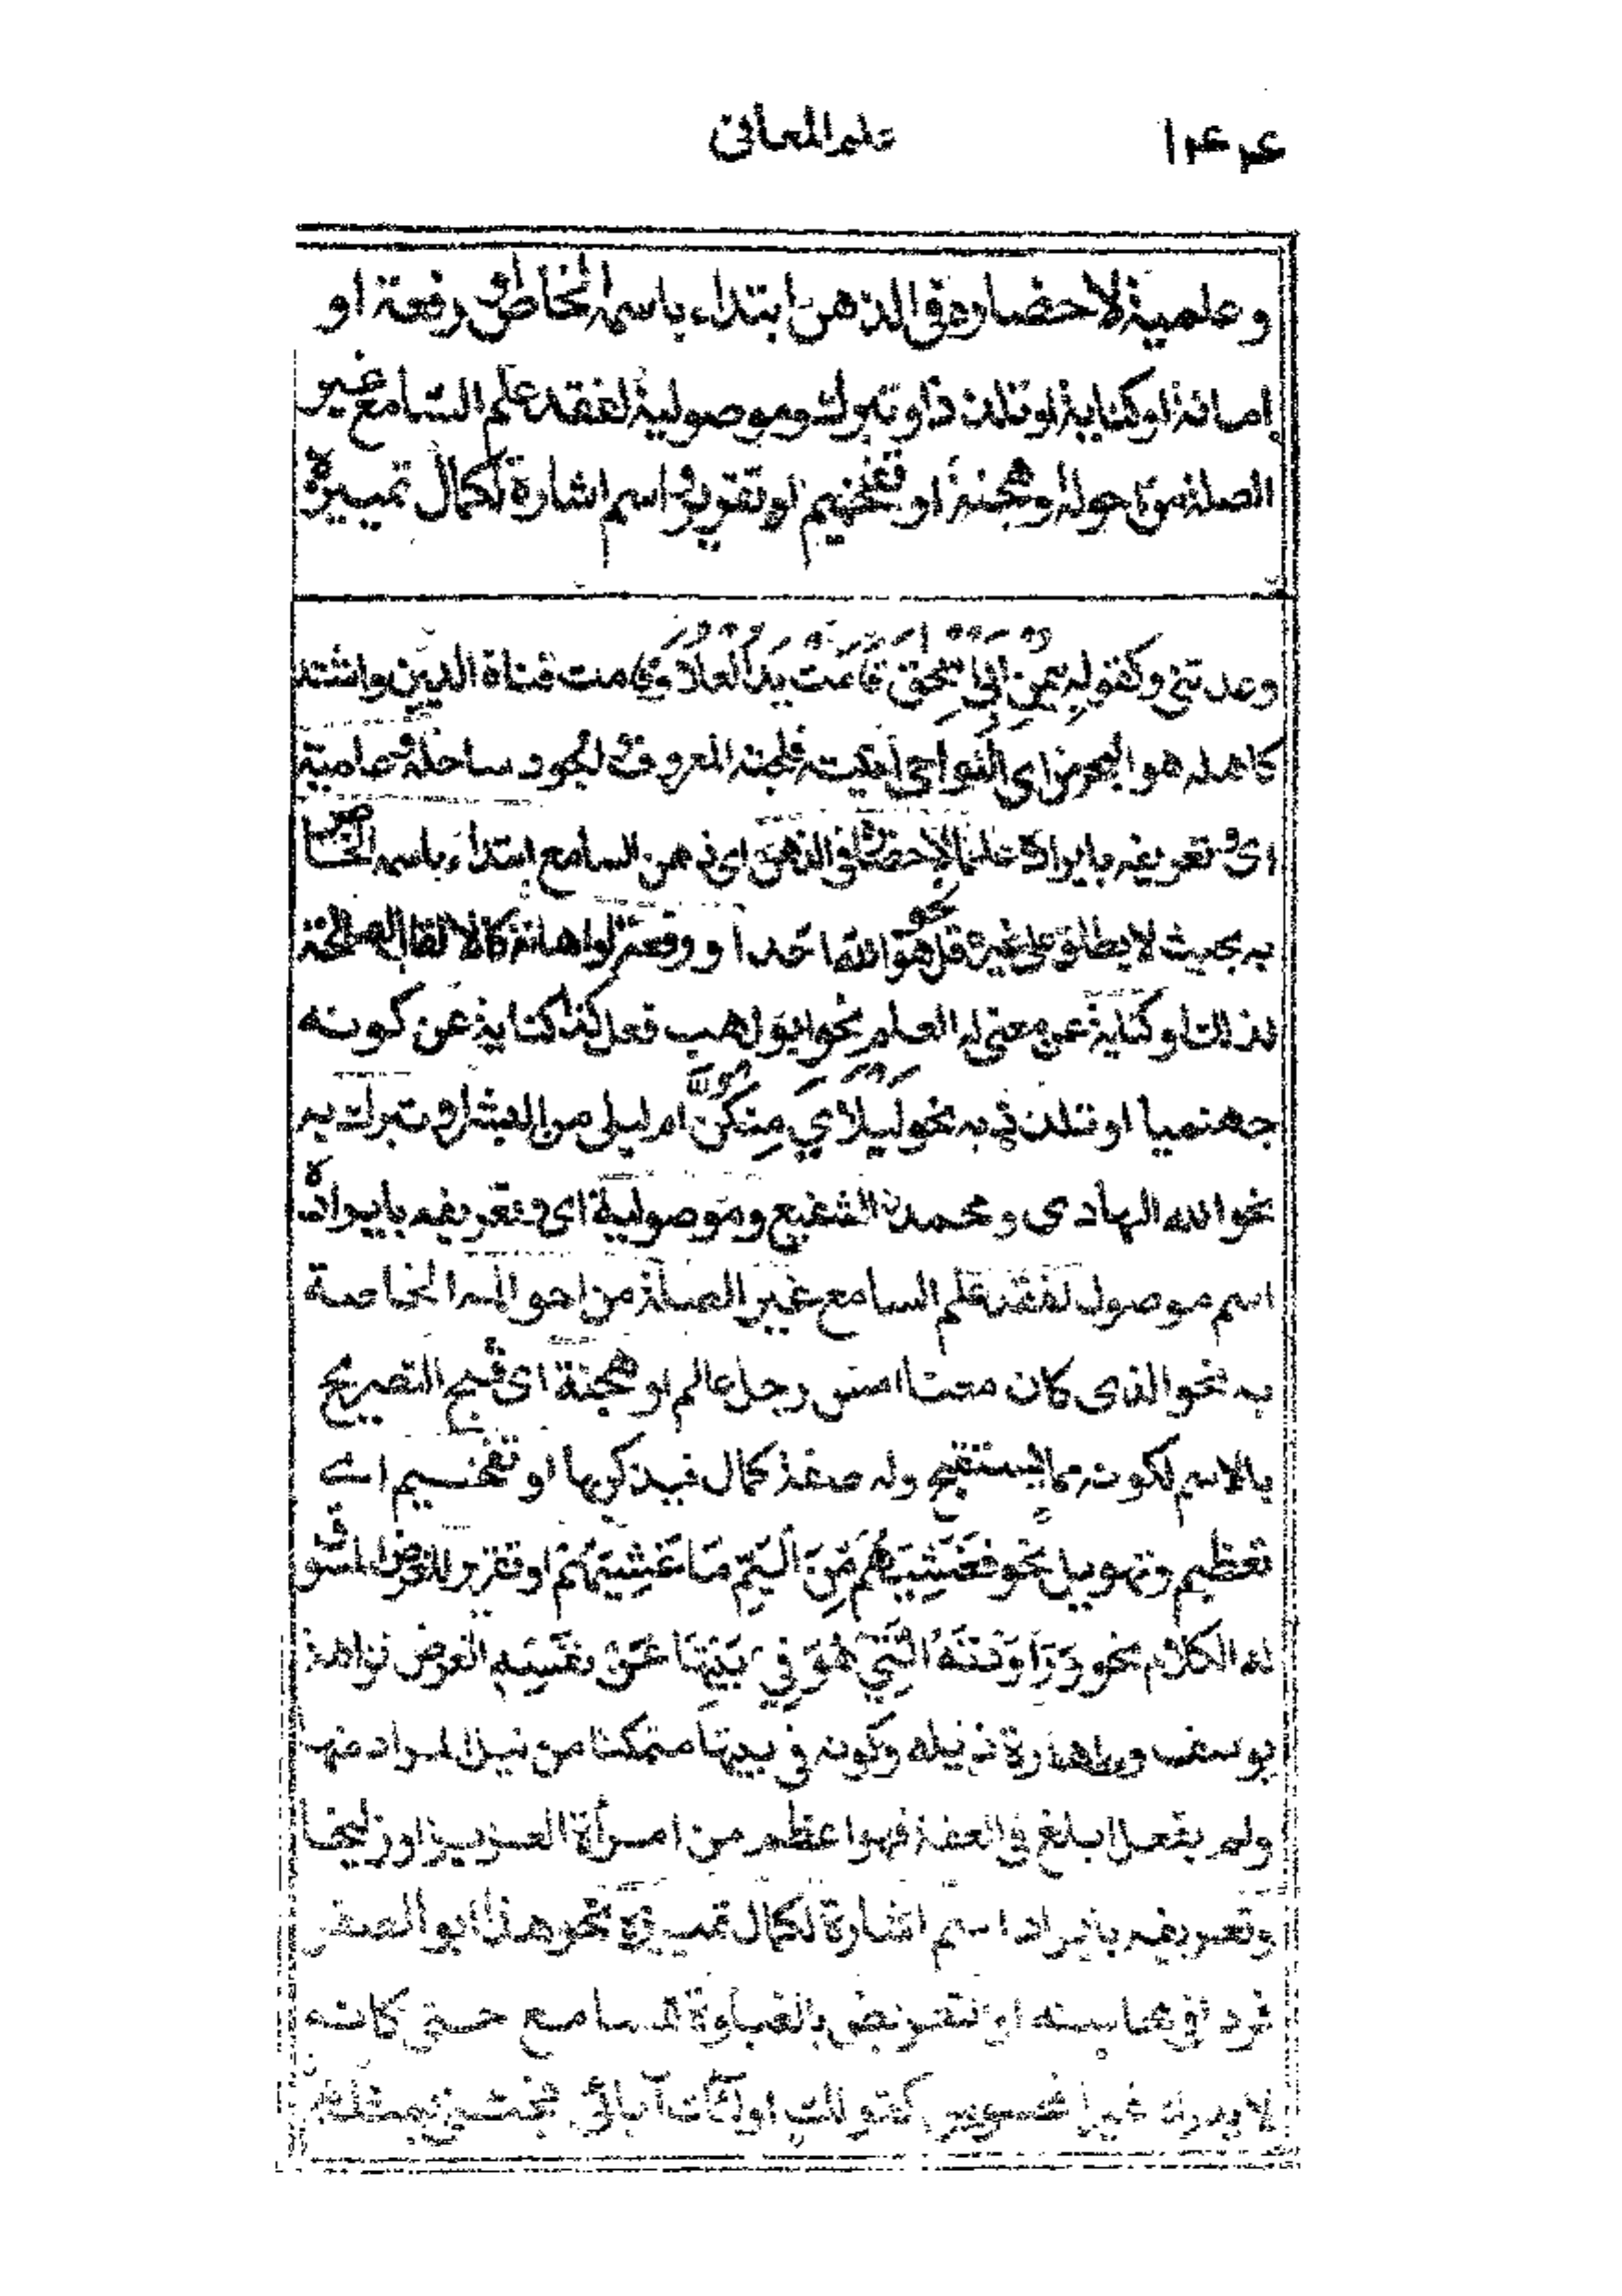 ١٤٤ علم المعاني
وعلمية لاحضاره في الذهن ابتداء باسمه الخاص رفعة او
اهانة او كناية او تلذذا او تبرك وموصولية لفقد علم السامع غير
الصلة من احواله او هجنة او تفخيم او تقرير واسم اشارة لكمال تمييزه
وعدتني وكقوله قامت قناة الدين واشتد
كاهله هو البحر من اي النواحي اتيته فلجته المعروف والجود ساحله وعلمية
اى وتعريفه بايراده علما لاحضاره في الذهن اى ذهن السامع ابتداء باسمه الخاص
به بحيث لا يطلق على غيره نحو قل هو الله احد او رفعة او اهانة كالالقاب الصالحة
لذلك او كناية عن معنى له العلم نحو ابو لهب فعل كذا كناية عن كونه
جهنميا او تلذذ به نحو ليلاي منكن ام ليلى من البشر او تبرك به
نحو الله الهادى ومحمدن الشفيع وموصولية اى وتعريفه بايراده
اسم موصول لفقد علم السامع غير الصلة من احواله الخاصة
به نحو الذى كان معنا امس رجل عالم او هجنة اى قبح التصريح
بالاسم لكونه مما يستقبح وله صفة كمال فيذكر بها او تفخيم اے
تعظيم وتهويل نحو فَغَشِيَهُم مِّنَ الْيَمِّ مَا غَشِيَهُمْ او تقرير للغرض المسوق
له الكلام نحو وَرَاوَدَتْهُ الَّتِي هُوَ فِي بَيْتِهَا عَنْ نَفْسِهِ الغرض نزاهة
يوسف وطهارة ذيله وكونه في بيتها متمكنا من نيل المراد منها
ولم يفعل ابلغ في العفة فهو اعظم من امرأة العزيز او زليخا
وتعريفه بايراد اسم اشارة لكمال تمييزه نحو هذا ابو الصقر
فردا في محاسنه او تعريض بالغباوة للسامع حتى كانه
لا يدرك غير المحسوس كقوله اولئك آبائى فجئنى بمثلهم